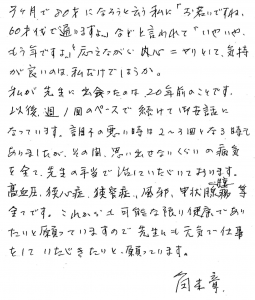 ヶ月で80才になろうと云う私に「お若いですね、
60才代で通りますよ」などと言われて「いやいや
もう年ですよ」と応えながら内心ニヤリとして、気持
が良いのは、私だけでしょうか。
私が先生に出会ったのは20年前のことです。
以後、週1回のペースで続けて御世話に
なっています。調子の悪い時は2〜3回/
ありましたが、その間、思い出せないくらいの病気
を全て、先生の手当で治していただいております。
高血圧、狭心症、狭窄症、風邪、甲状腺腫等
全てです。これからも可能な限り健康であり
たいと願っていますので先生にも元気で仕事
をしていただきたいと、願っています。